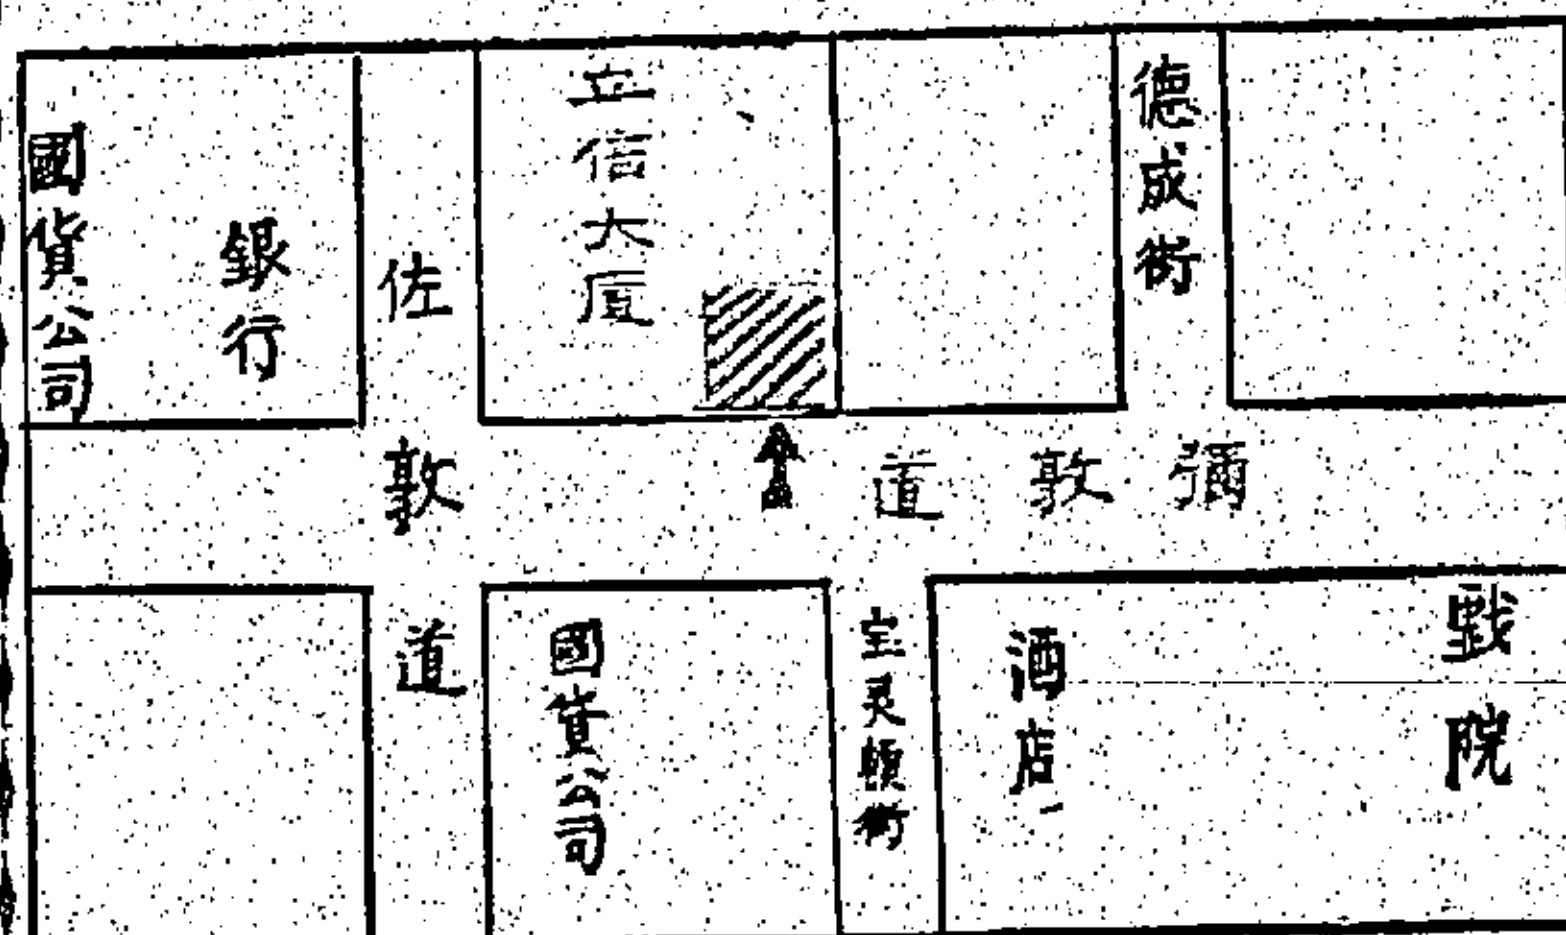 國貨公司
銀行
佐敦道
立信大厦
德成街
彌敦道
國貨公司
宝灵頓街
酒店
戲院